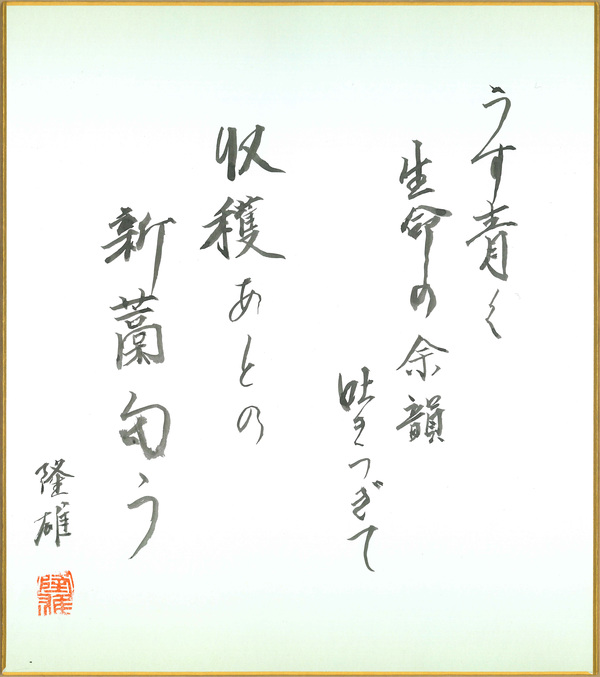 うす青く
生命の余韻
吐きつぎて
収穫あとの
新藁匂う
隆雄